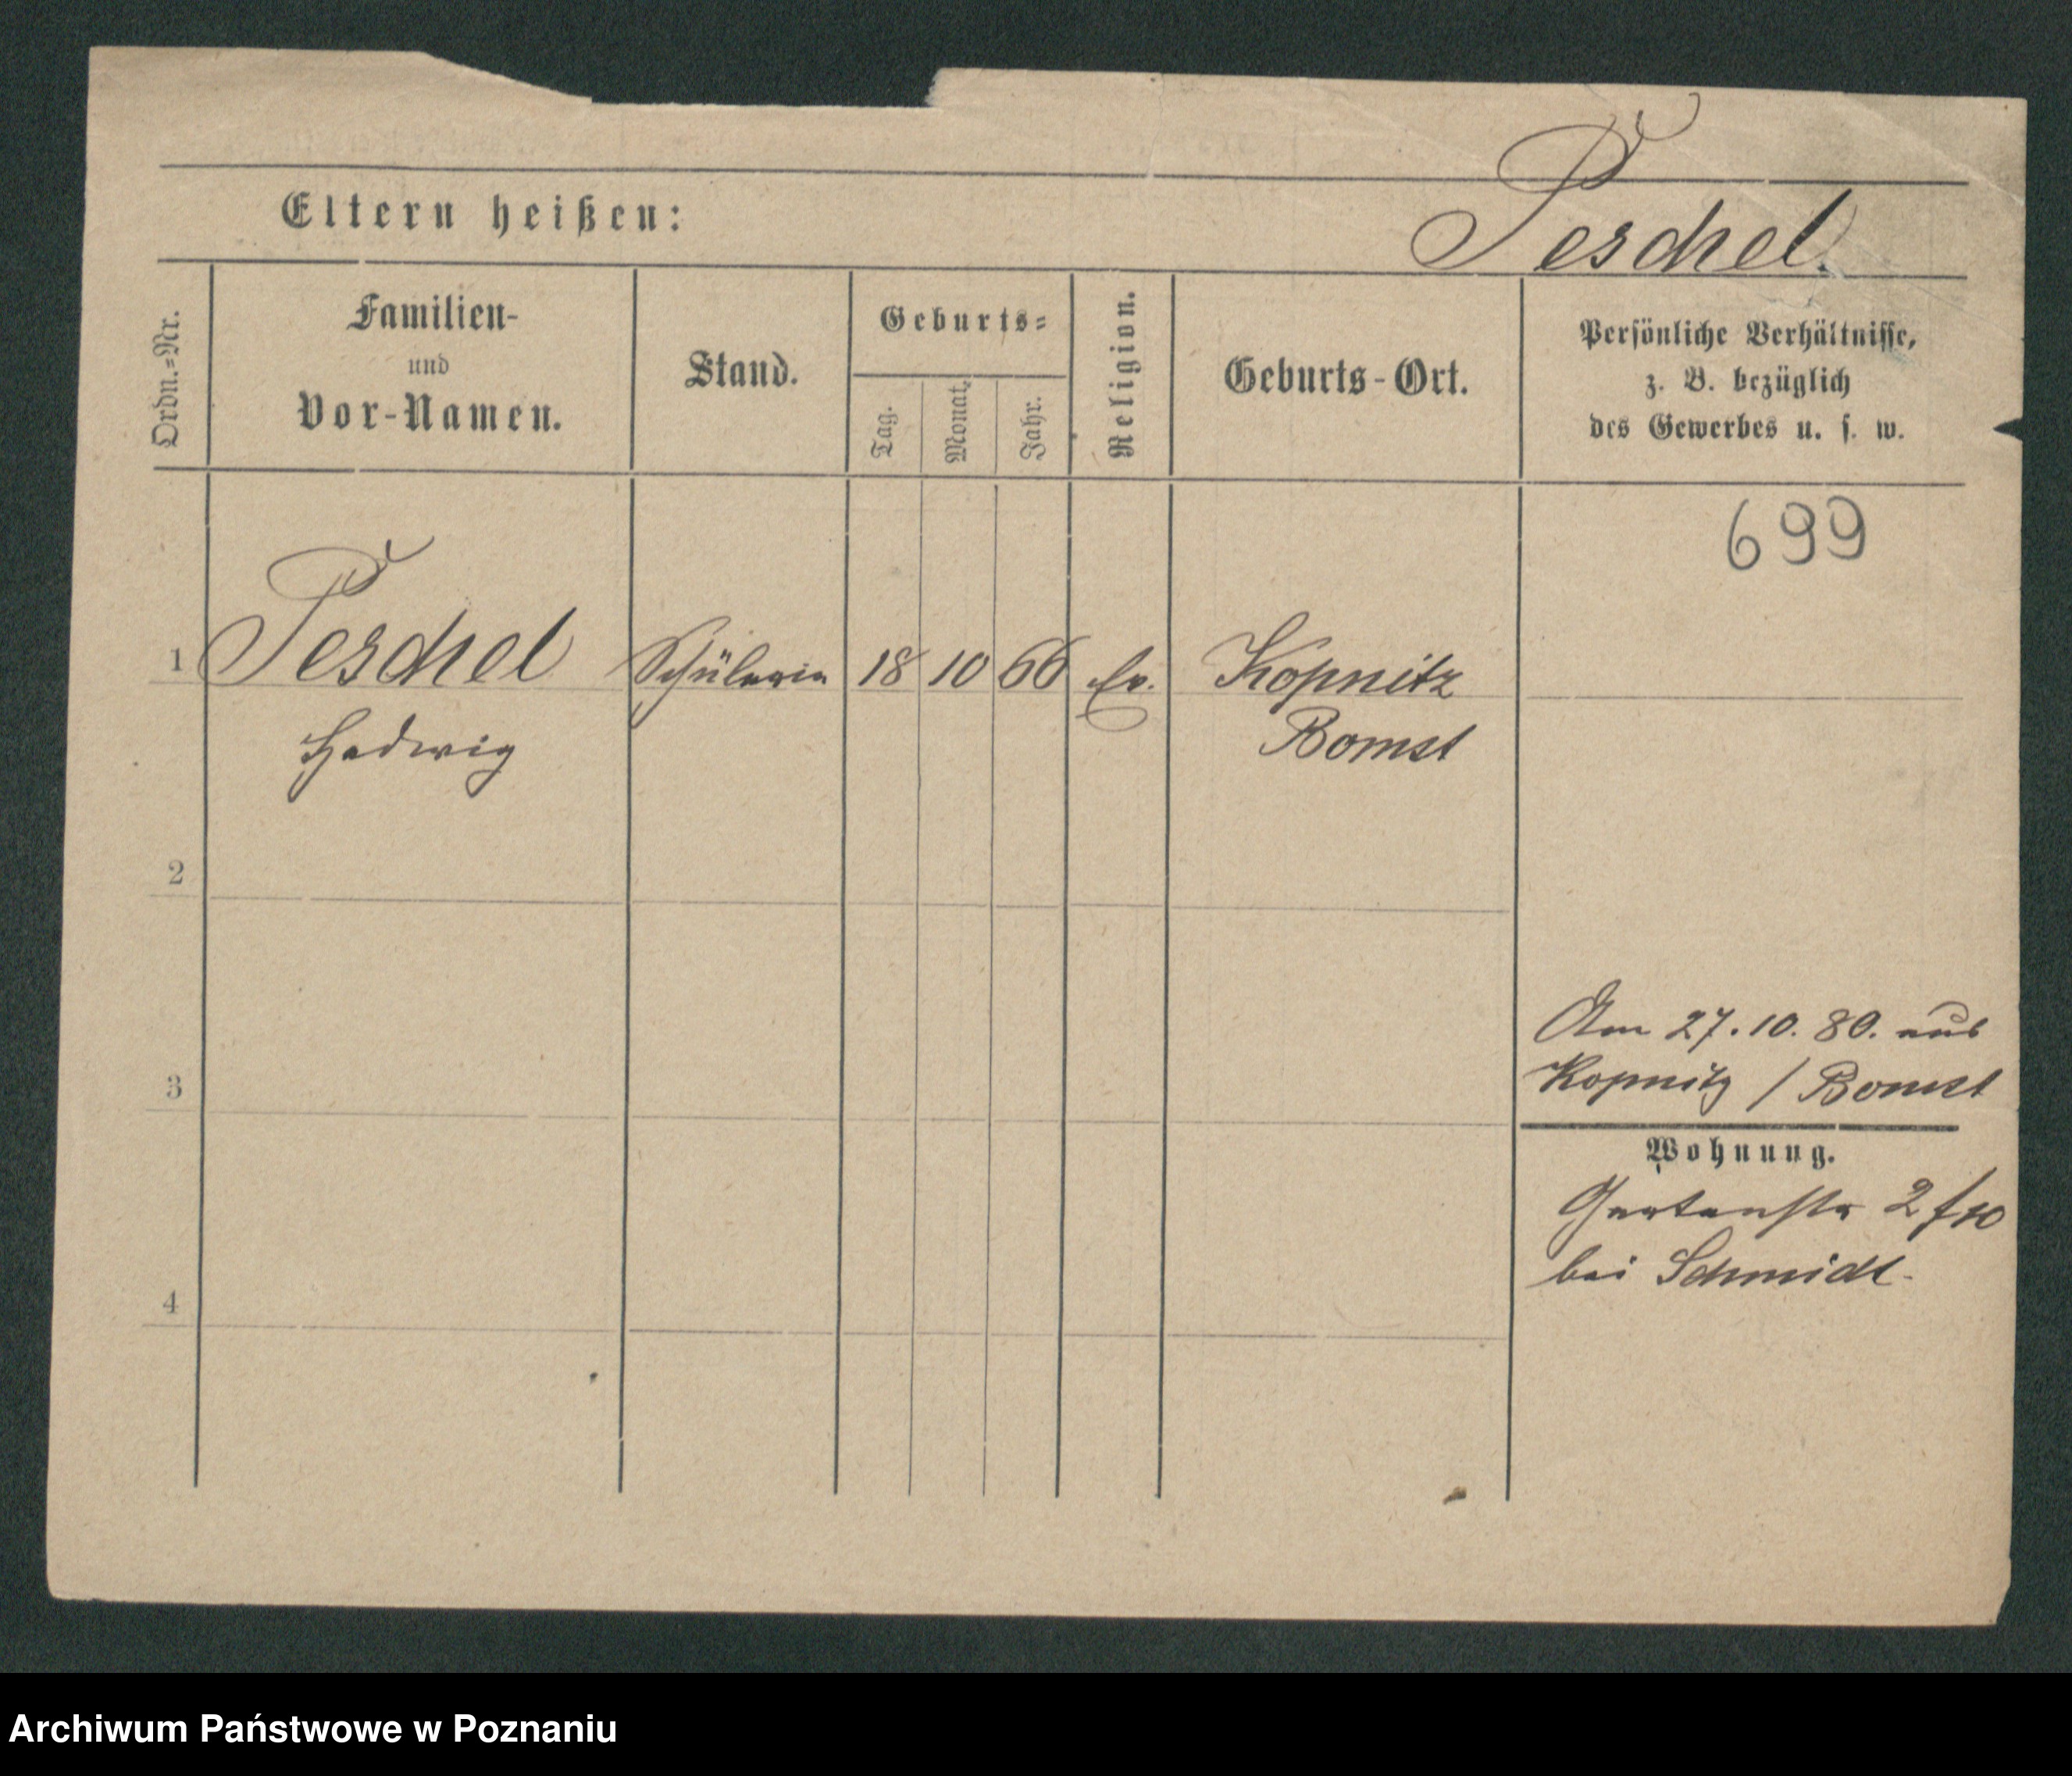 Eltern heißen:
Peschel.
Ordn.=Nr.
Familien-
und
Vor-Namen.
Stand.
Geburts=
Tag.
Monat.
Jahr.
Religion.
Geburts-Ort.
Persönliche Verhältnisse,
z. B. bezüglich
des Gewerbes u. s. w.
699
1 Peschel Schülerin 18 10 66 Ev. Kopnitz
Hedwig Bomst
2
3
Am 27. 10. 80. aus
Kopnitz / Bomst
Wohnung.
Gartenstr 2
bei Schmidt.
4
Archiwum Państwowe w Poznaniu